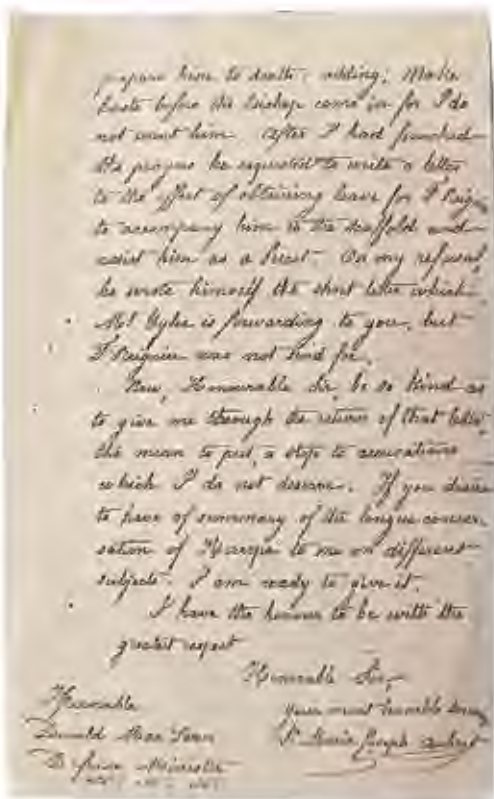 prepare him to death, adding; Make
haste before the bishop come in for I do
not want him. After I had finished
the prayers he requested to write a letter
to the effect of obtaining leave for F Reignier
to accompany him to the scaffold and
assist him as a Priest. On my refusal,
he wrote himself the short letter which
Mr Tyler is forwarding to you, but
F Reignier was not send for.
Now, Honourable Sir, be so kind as
to give me through the return of that letter,
the mean to put a stop to accusations
which I do not deserve. If you desire
to have of summary of the longue conver
sation of Kereopa to me on different
subjects. I am ready to give it.
I have the honour to be with the
greatest respect
Honourable Sir,
your most humble servant
Sr Marie Joseph Aubert
Honourable
Donald MacLean
Defence Minister